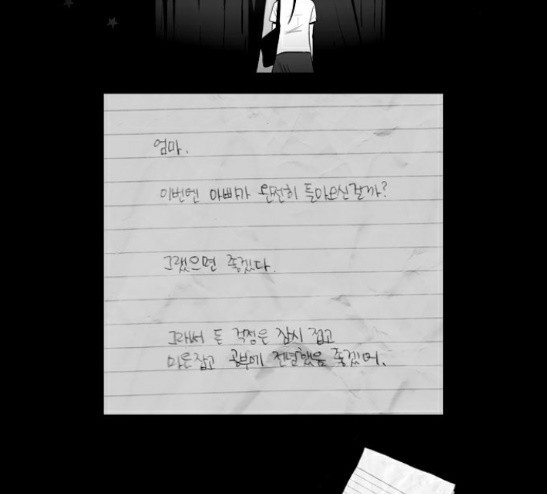 엄마.
이번엔 아빠가 완전히 돌아오신걸까?
그랬으면 좋겠다.
그래서 돈 걱정은 잠시 접고
마음잡고 공부에 전념했음 좋겠어.